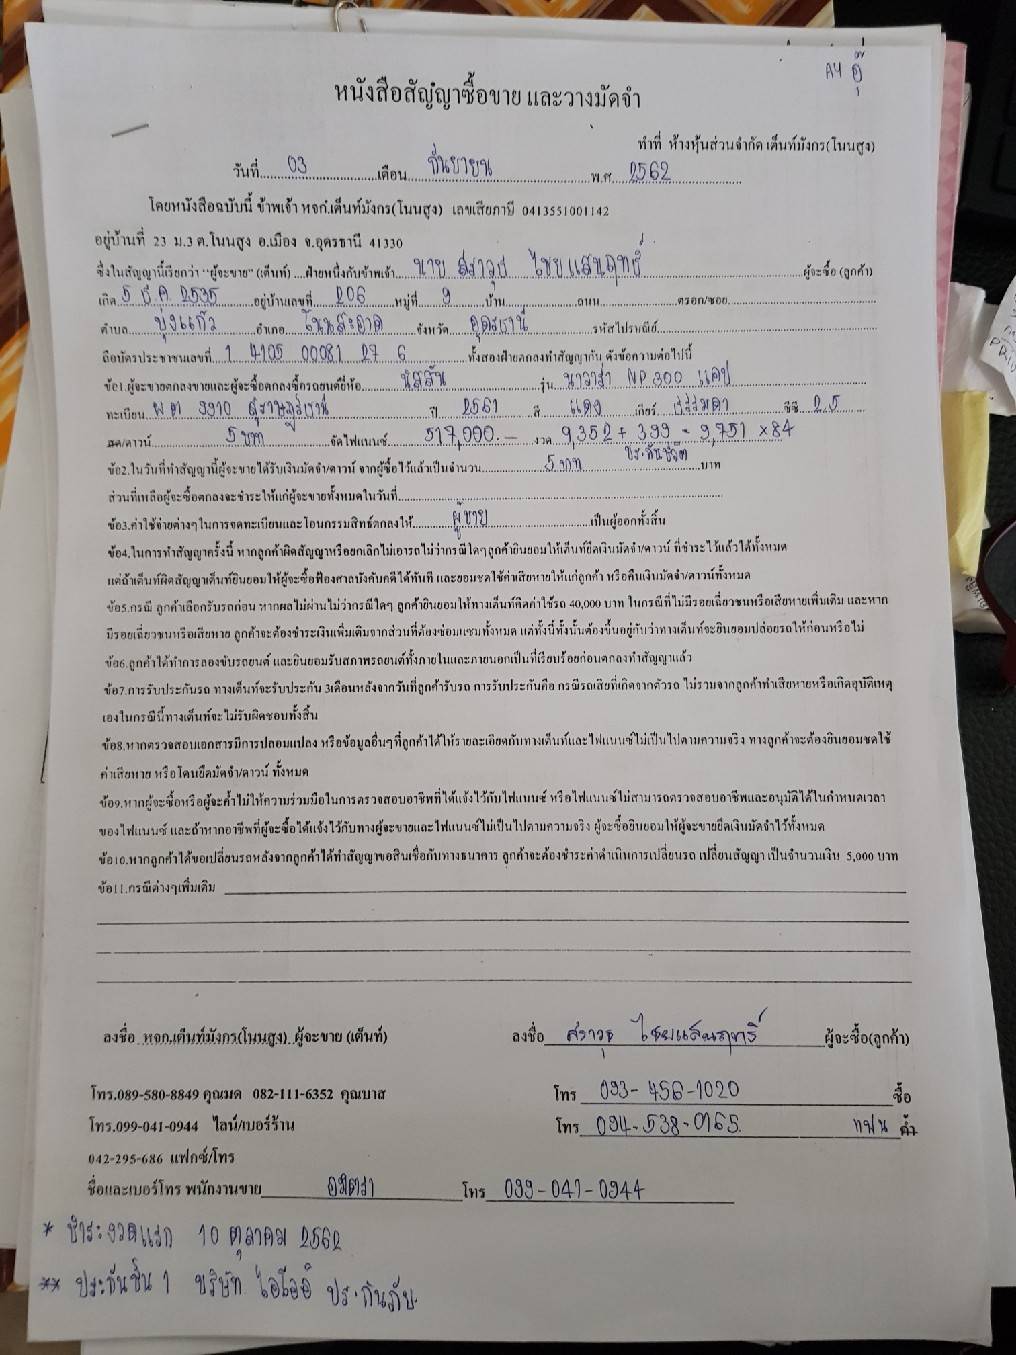 A4 อุ๊
หนังสือสัญญาซื้อขาย และวางมัดจำ
ทำที่ ห้างหุ้นส่วนจำกัด เต็นท์มังกร(โนนสูง)
วันที่ 03 เดือน กันยายน พ.ศ. 2562
โดยหนังสือฉบับนี้ ข้าพเจ้า หจก.เต็นท์มังกร(โนนสูง) เลขเสียภาษี 0413551001142
อยู่บ้านที่ 23 ม.3 ต.โนนสูง อ.เมือง จ.อุดรธานี 41330
ซึ่งในสัญญานี้เรียกว่า "ผู้จะขาย" (เต็นท์) ฝ่ายหนึ่งกับข้าพเจ้า นาย สราวุธ ไชยแสนฤทธิ์ ผู้จะซื้อ (ลูกค้า)
เกิด 5 ธ.ค. 2535 อยู่บ้านเลขที่ 206 หมู่ที่ 9 บ้าน ถนน ตรอก/ซอย
ตำบล บุ่งแก้ว อำเภอ โนนสะอาด จังหวัด อุดรธานี รหัสไปรษณีย์
ถือบัตรประชาชนเลขที่ 1 4105 00081 27 6 ทั้งสองฝ่ายตกลงทำสัญญากัน ดังข้อความต่อไปนี้
ข้อ1.ผู้จะขายตกลงขายและผู้จะซื้อตกลงซื้อรถยนต์ยี่ห้อ นิสสัน รุ่น นาวาร่า NP 300 แคป
ทะเบียน ผต 3910 สุราษฎร์ธานี ปี 2561 สี แดง เกียร์ ธรรมดา ซีซี 2.5
สด/ดาวน์ 5 บาท จัดไฟแนนซ์ 517,000.- งวด 9,352 + 399 = 9,751 × 84
ประกันชีวิต
ข้อ2.ในวันที่ทำสัญญานี้ผู้จะขายได้รับเงินมัดจำ/ดาวน์ จากผู้ซื้อไว้แล้วเป็นจำนวน 5 บาท บาท
ส่วนที่เหลือผู้จะซื้อตกลงจะชำระให้แก่ผู้จะขายทั้งหมดในวันที่
ข้อ3.ค่าใช้จ่ายต่างๆในการจดทะเบียนและโอนกรรมสิทธ์ตกลงให้ ผู้ขาย เป็นผู้ออกทั้งสิ้น
ข้อ4.ในการทำสัญญาครั้งนี้ หากลูกค้าผิดสัญญาหรือยกเลิกไม่เอารถไม่ว่ากรณีใดๆลูกค้ายินยอมให้เต็นท์ยึดเงินมัดจำ/ดาวน์ ที่ชำระไว้แล้วได้ทั้งหมด
แต่ถ้าเต็นท์ผิดสัญญาเต็นท์ยินยอมให้ผู้จะซื้อฟ้องศาลบังคับคดีได้ทันที และยอมชดใช้ค่าเสียหายให้แก่ลูกค้า หรือคืนเงินมัดจำ/ดาวน์ทั้งหมด
ข้อ5.กรณี ลูกค้าเลือกรับรถก่อน หากผลไม่ผ่านไม่ว่ากรณีใดๆ ลูกค้ายินยอมให้ทางเต็นท์คิดค่าใช้รถ 40,000 บาท ในกรณีที่ไม่มีรอยเฉี่ยวชนหรือเสียหายเพิ่มเติม และหาก
มีรอยเฉี่ยวชนหรือเสียหาย ลูกค้าจะต้องชำระเงินเพิ่มเติมจากส่วนที่ต้องซ่อมแซมทั้งหมด แต่ทั้งนี้ทั้งนั้นต้องขึ้นอยู่กับว่าทางเต็นท์จะยินยอมปล่อยรถให้ก่อนหรือไม่
ข้อ6.ลูกค้าได้ทำการลองขับรถยนต์ และยินยอมรับสภาพรถยนต์ทั้งภายในและภายนอกเป็นที่เรียบร้อยก่อนตกลงทำสัญญาแล้ว
ข้อ7.การรับประกันรถ ทางเต็นท์จะรับประกัน 3เดือนหลังจากวันที่ลูกค้ารับรถ การรับประกันคือ กรณีรถเสียที่เกิดจากตัวรถ ไม่รวมจากลูกค้าทำเสียหายหรือเกิดอุบัติเหตุ
เองในกรณีนี้ทางเต็นท์จะไม่รับผิดชอบทั้งสิ้น
ข้อ8.หากตรวจสอบเอกสารมีการปลอมแปลง หรือข้อมูลอื่นๆที่ลูกค้าได้ให้รายละเอียดกับทางเต็นท์และไฟแนนซ์ไม่เป็นไปตามความจริง ทางลูกค้าจะต้องยินยอมชดใช้
ค่าเสียหาย หรือโดนยึดมัดจำ/ดาวน์ ทั้งหมด
ข้อ9.หากผู้จะซื้อหรือผู้จะค้ำไม่ให้ความร่วมมือในการตรวจสอบอาชีพที่ได้แจ้งไว้กับไฟแนนซ์ หรือไฟแนนซ์ไม่สามารถตรวจสอบอาชีพและอนุมัติได้ในกำหนดเวลา
ของไฟแนนซ์ และถ้าหากอาชีพที่ผู้จะซื้อได้แจ้งไว้กับทางผู้จะขายและไฟแนนซ์ไม่เป็นไปตามความจริง ผู้จะซื้อยินยอมให้ผู้จะขายยึดเงินมัดจำไว้ทั้งหมด
ข้อ10.หากลูกค้าได้ขอเปลี่ยนรถหลังจากลูกค้าได้ทำสัญญาขอสินเชื่อกับทางธนาคาร ลูกค้าจะต้องชำระค่าดำเนินการเปลี่ยนรถ เปลี่ยนสัญญา เป็นจำนวนเงิน 5,000 บาท
ข้อ11.กรณีต่างๆเพิ่มเติม
ลงชื่อ หจก.เต็นท์มังกร(โนนสูง) ผู้จะขาย (เต็นท์) ลงชื่อ สราวุธ ไชยแสนฤทธิ์ ผู้จะซื้อ(ลูกค้า)
โทร.089-580-8849 คุณมด 082-111-6352 คุณบาส โทร 093-456-1020 ซื้อ
โทร.099-041-0944 ไลน์/เบอร์ร้าน โทร 094-538-0165 แฟน ค้ำ
042-295-686 แฟกซ์/โทร
ชื่อและเบอร์โทร พนักงานขาย อมิตรา โทร 099-041-0944
* ชำระงวดแรก 10 ตุลาคม 2562
** ประกันชั้น 1 บริษัท ไอโออิ ประกันภัย